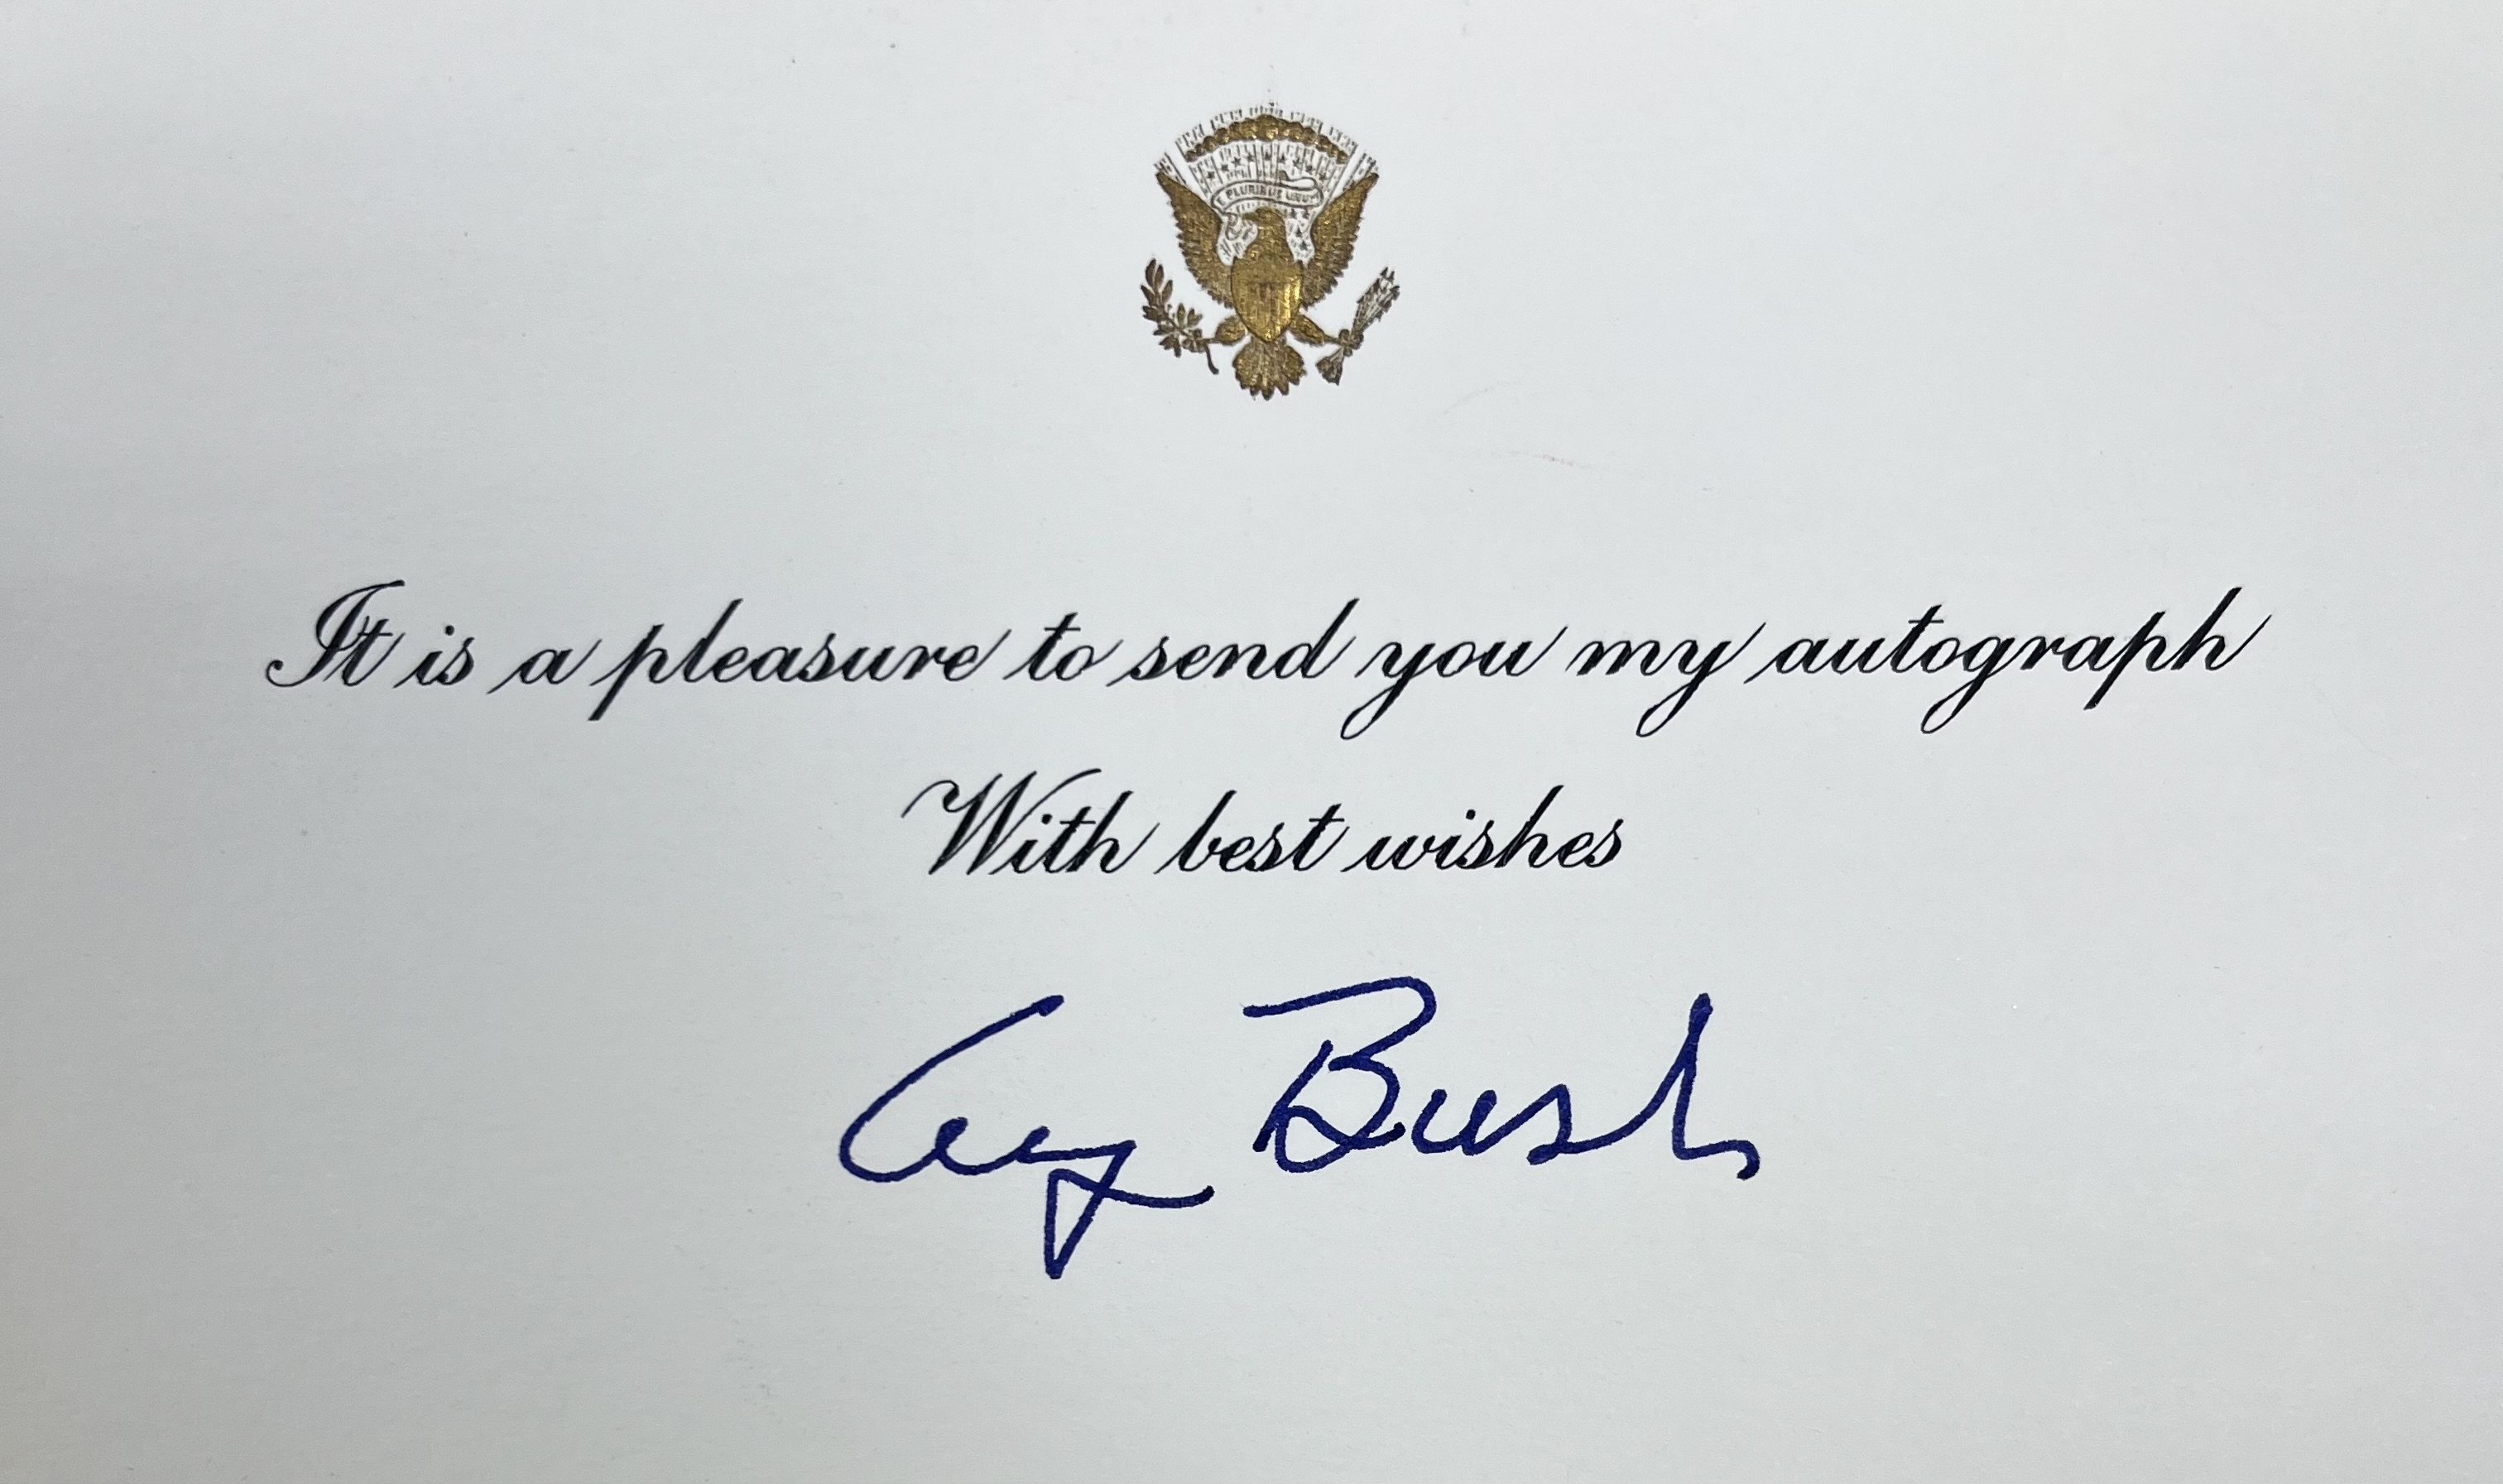 E PLURIBUS UNUM
It is a pleasure to send you my autograph
With best wishes
Bush